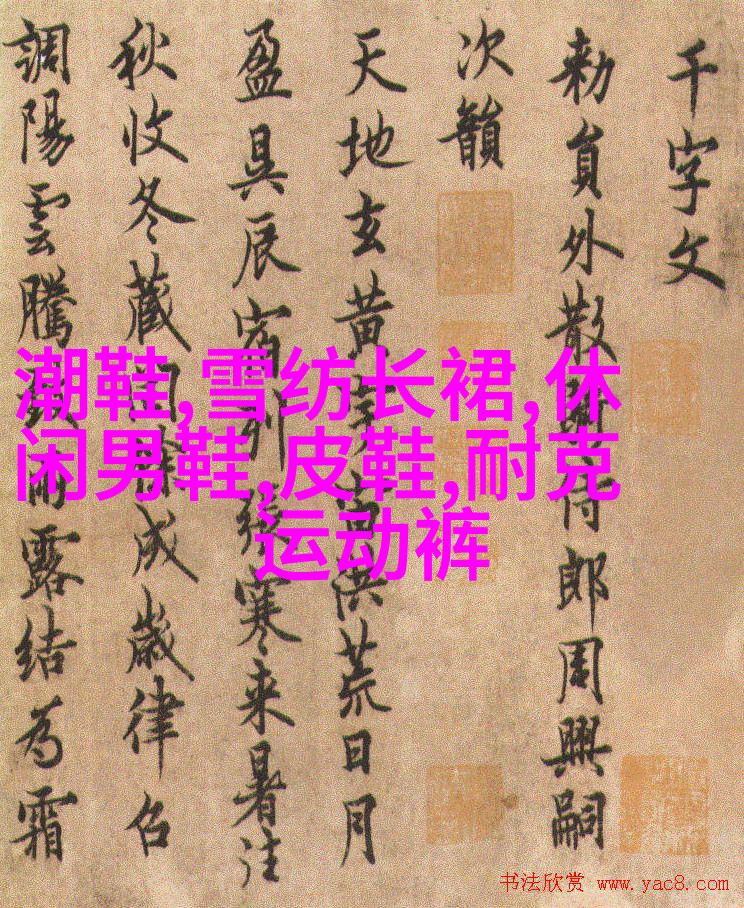 千字文
勑員外散侍郎周興嗣
次韻
天地玄黄宇宙洪荒日月
盈昃辰宿列張寒来暑往
秋收冬藏成歲律召
調陽雲騰雨露結為霜
潮鞋,雪纺长裙,休
闲男鞋,皮鞋,耐克
运动裤
书法欣赏 www.yac8.com